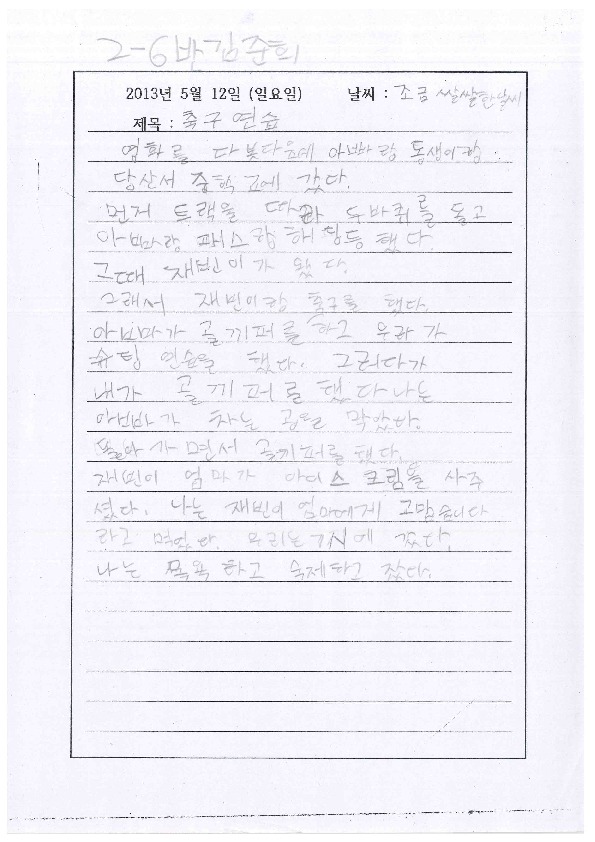 2-6반 김준희
2013년 5월 12일 (일요일) 날씨 : 조금 쌀쌀한날씨
제목 : 축구 연습
영화를 다 봇다음에 아빠랑 동생이랑
당산서 중학교에 갔다.
먼저 트랙을 따라 두바퀴를 돌고
아빠랑 패스랑 해딩등 했다.
그때 재빈이가 왔다.
그래서 재빈이랑 축구를 했다.
아빠가 골끼퍼를 하고 우리가
슈팅 연습을 했다. 그러다가
내가 골끼퍼를 했다 나는
아빠가 차는 공을 막았다.
돌아가면서 골끼퍼를 했다.
재빈이 엄마가 아이스크림를 사주
셨다. 나는 재빈이 엄마에게 고맙습니다
라고 먹었다. 우리는 집에 갔다.
나는 목욕하고 숙제하고 잤다.